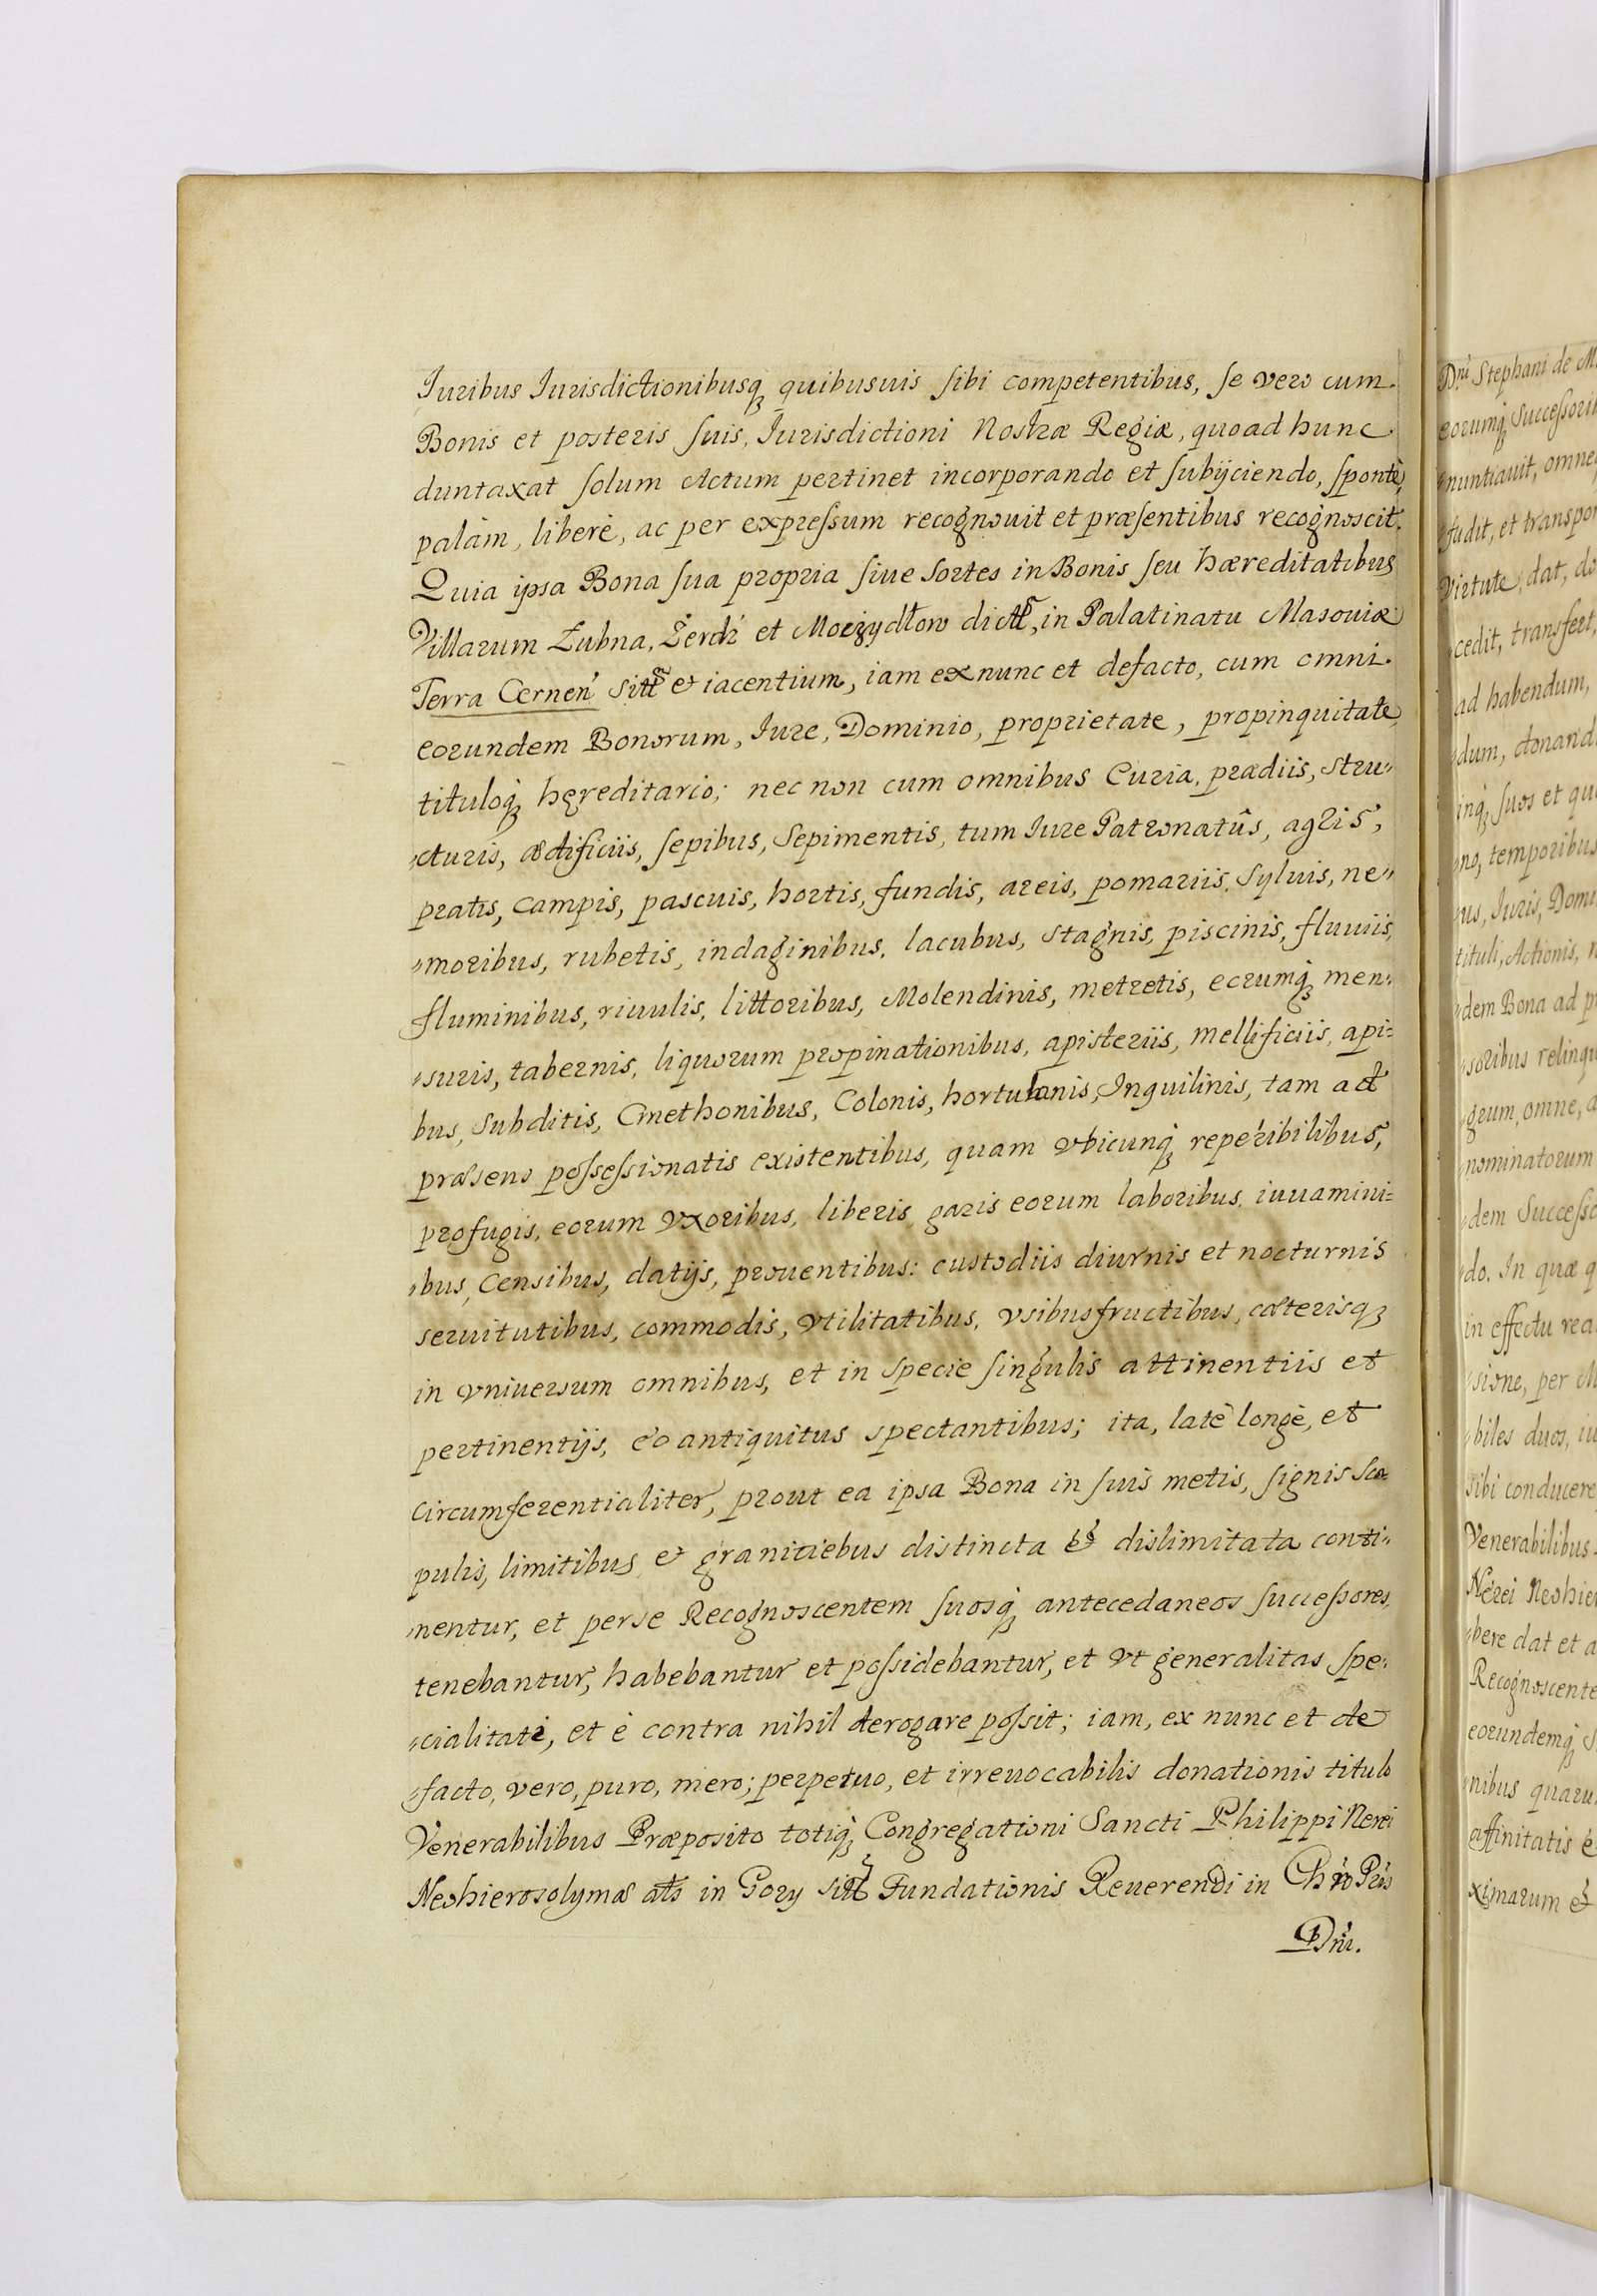 Iuribus Iurisdictionibusq quibusuis sibi competentibus, se vero cum
Bonis et posteris suis, Iurisdictioni Nostræ Regiæ, quoad hunc
duntaxat solum Actum pertinet incorporando et subijciendo, spontè,
palàm, liberè, ac per expressum recognouit et præsentibus recognoscit.
Quia ipsa Bona sua propria siue Sortes in Bonis seu hæreditatibus
Villarum Łubna, Żerdź et Moczydłow in Palatinatu Masouiæ
Terra Cernen̄ & iacentium, iam ex nunc et defacto, cum omni
eorundem Bonorum, Iure, Dominio, proprietate, propinquitate
tituloq hęreditario; nec non cum omnibus Curia, prædiis, stru„
„cturis, ædificiis, sepibus, Sepimentis, tum Iure Patronatûs, agris,
pratis, campis, pascuis, hortis, fundis, areis, pomariis, Syluis, ne„
„moribus, rubetis, indaginibus, lacubus, stagnis, piscinis, fluuiis,
fluminibus, riuulis, littoribus, Molendinis, metretis, eorumq men„
„suris, tabernis, liquorum propinationibus, apisteriis, mellificiis, api=
bus, subditis, Cmethonibus, Colonis, hortulanis, Inquilinis, tam ad
præsens possessionatis existentibus, quam vbicunq reperibilibus,
profugis, eorum vxoribus, liberis gazis eorum laboribus, iuuamini=
„bus, Censibus, datijs, prouentibus: custodiis diurnis et nocturnis
seruitutibus, commodis, vtilitatibus, vsibusfructibus, cæterisq
in vniuersum omnibus, et in specie singulis attinentiis et
pertinentijs, eò antiquitus spectantibus; ita, latè longè, et
circumferentialiter, prout ea ipsa Bona in suis metis, signis sco=
pulis, limitibus & graniciebus distincta & dislimitata conti„
„nentur, et per se Recognoscentem suosq antecedaneos successores
tenebantur, habebantur et possidebantur, et vt generalitas spe„
„cialitati, et è contra nihil derogare possit; iam, ex nunc et de
„facto, vero, puro, mero; perpetuo, et irreuocabilis donationis titulo
Venerabilibus Præposito totiq Congregationi Sancti Philippi Nerei
Neohierosolymæ als in Gory Fundationis Reuerendi in Chrō Pris
Dnī.
Dni Stephani de M
eorumq Successorib
„nuntiauit, omne
„fudit, et transpor
virtute, dat, do
„cedit, transfert,
ad habendum,
„dum, donand
inq suos et qu
„no, temporibus
„us, Iuris, Domi
tituli, Actionis,
„dem Bona ad p
„soribus relinqu
„grum, omne, a
nominatorum
„dem Successo
„do. In quæ q
in effectu rea
„sione, per M
„biles duos, iu
sibi conducere
Venerabilibus
Nerei Neohie
„bere dat et a
Recognoscente
eorundemq S
„nibus quaru
affinitatis e
ximarum &